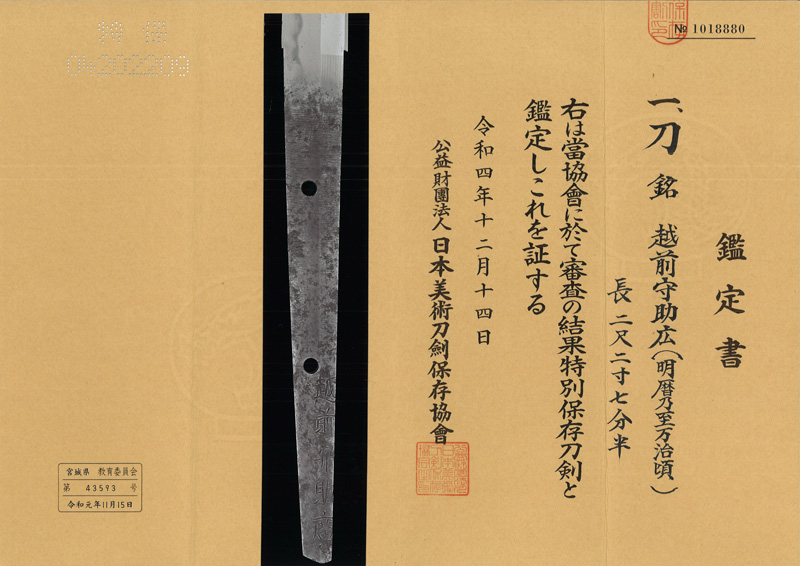 № 1018880
鑑定書
一、刀 銘 越前守助広(明暦乃至万治頃)
長 二尺二寸七分半
右は當協會に於て審査の結果特別保存刀剣と
鑑定しこれを証する
令和四年十二月十四日
公益財團法人 日本美術刀劍保存協會
宮城県 教育委員会
第 43593 号
令和元年11月15日